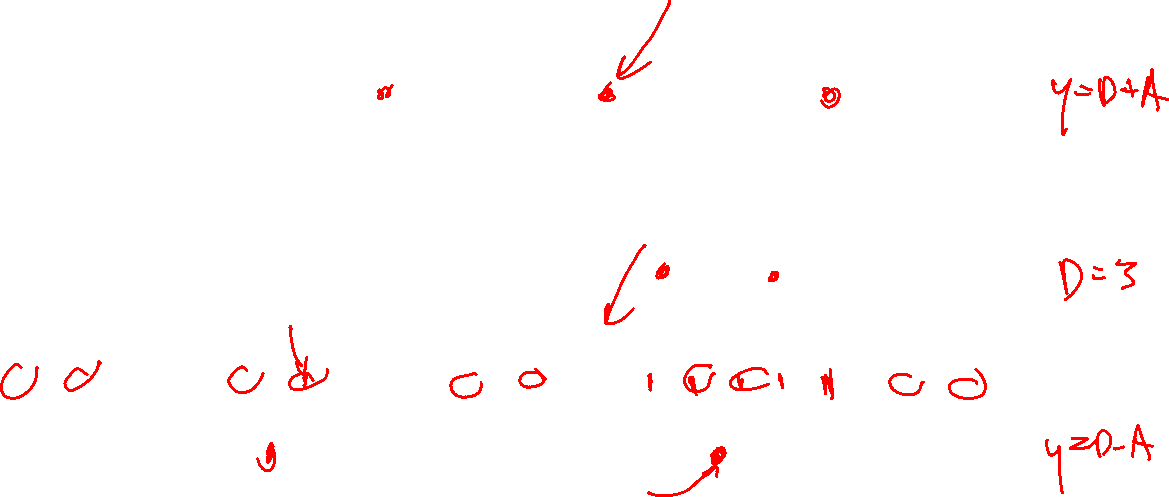 y=D+A
D=3
y=D-A